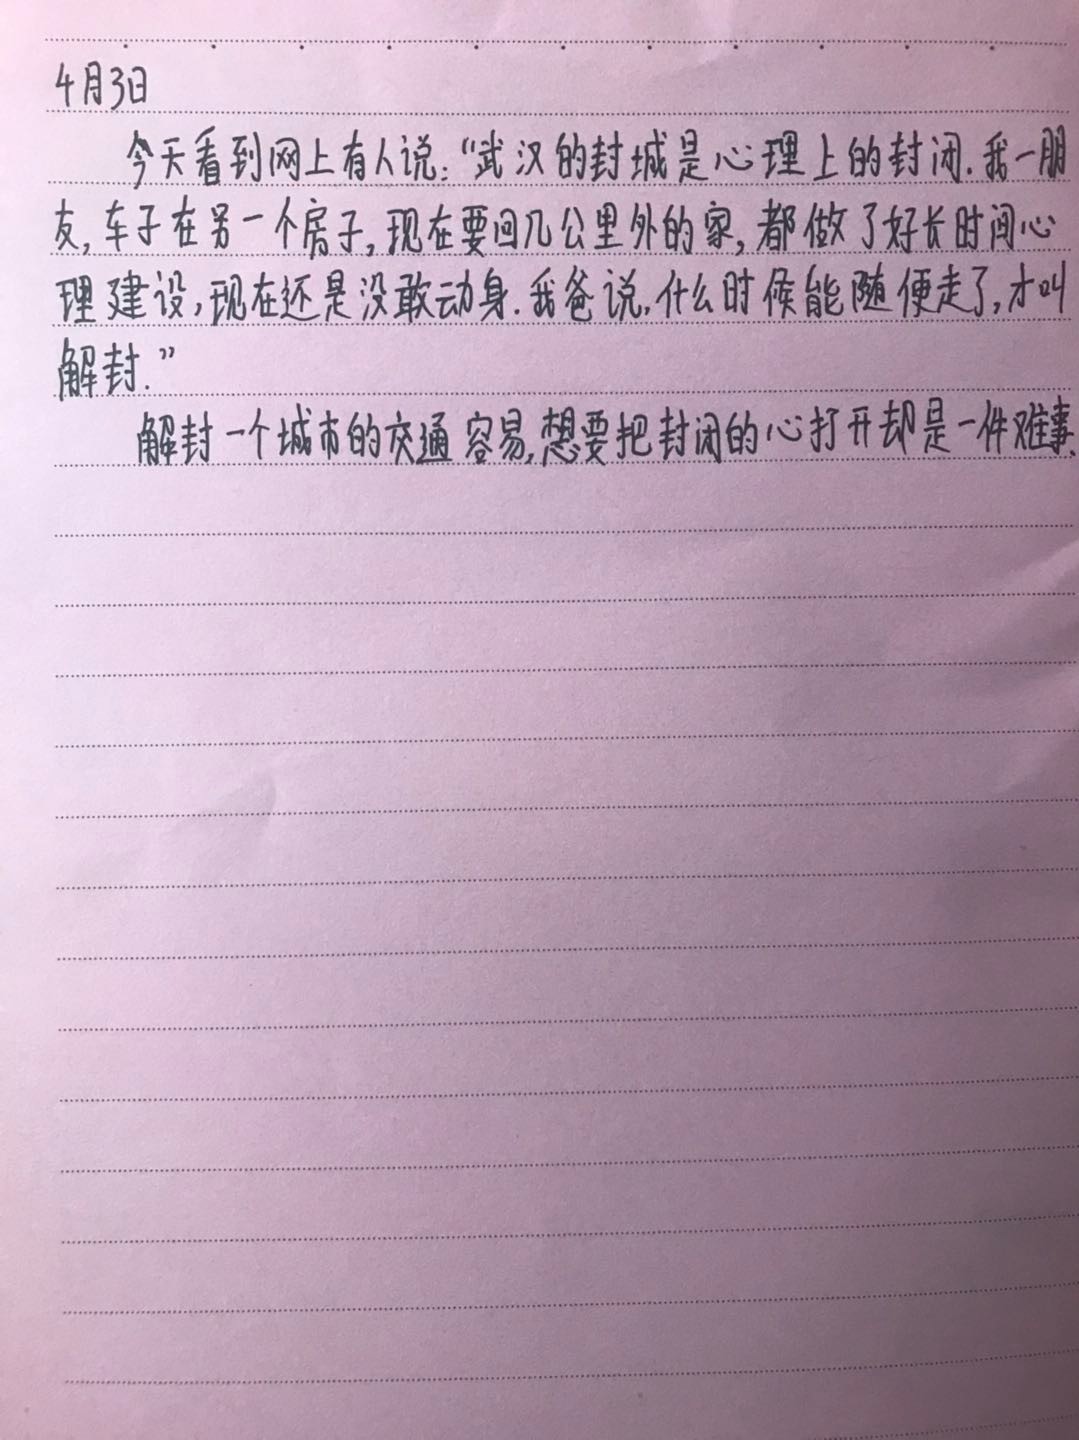 4月3日
今天看到网上有人说：“武汉的封城是心理上的封闭.我一朋
友,车子在另一个房子,现在要回几公里外的家,都做了好长时间心
理建设,现在还是没敢动身.我爸说,什么时候能随便走了,才叫
解封.”
解封一个城市的交通容易,想要把封闭的心打开却是一件难事.